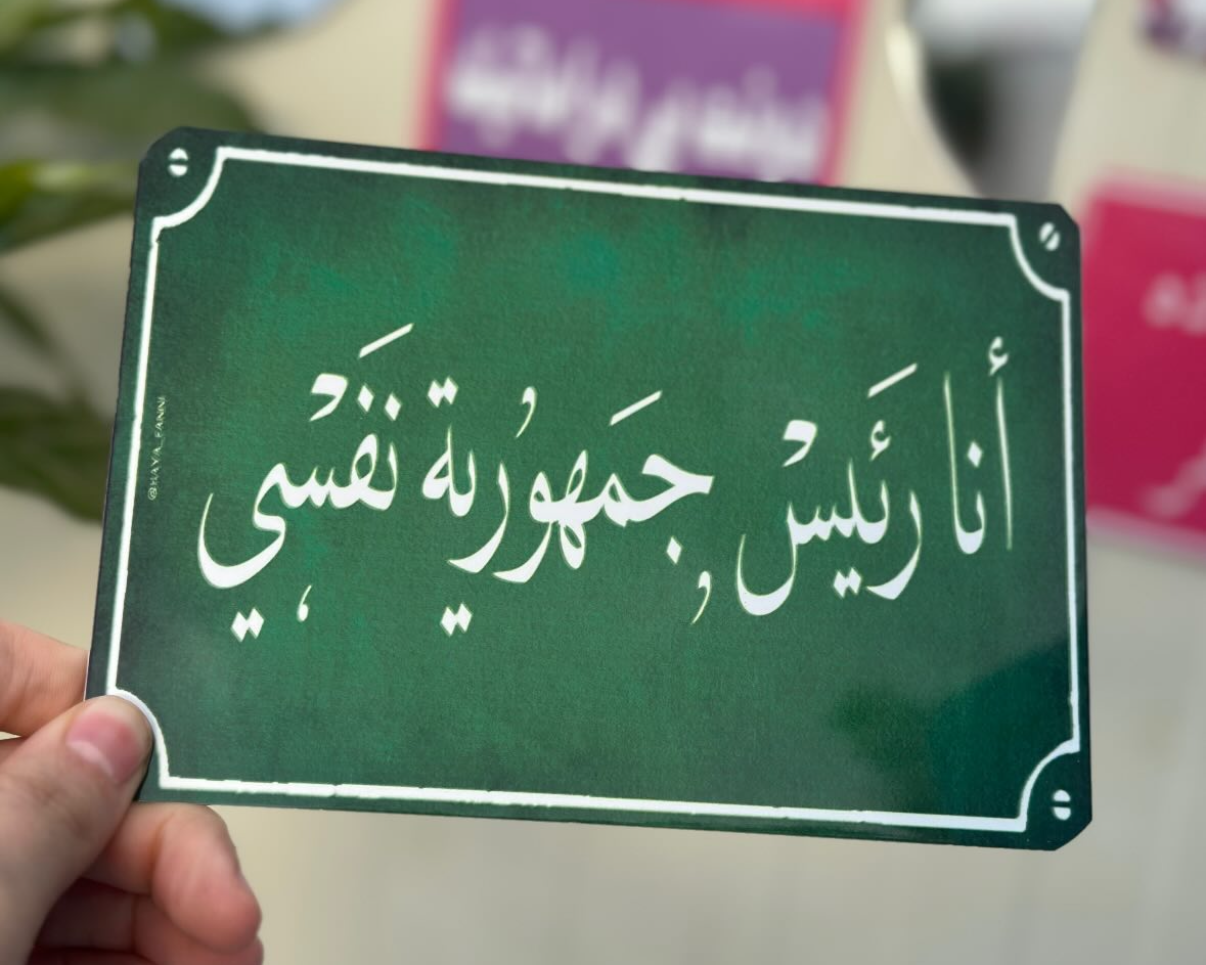 أنا رَئَيسْ جَمهوُرية نَفسْي
@HAYA_FANNI